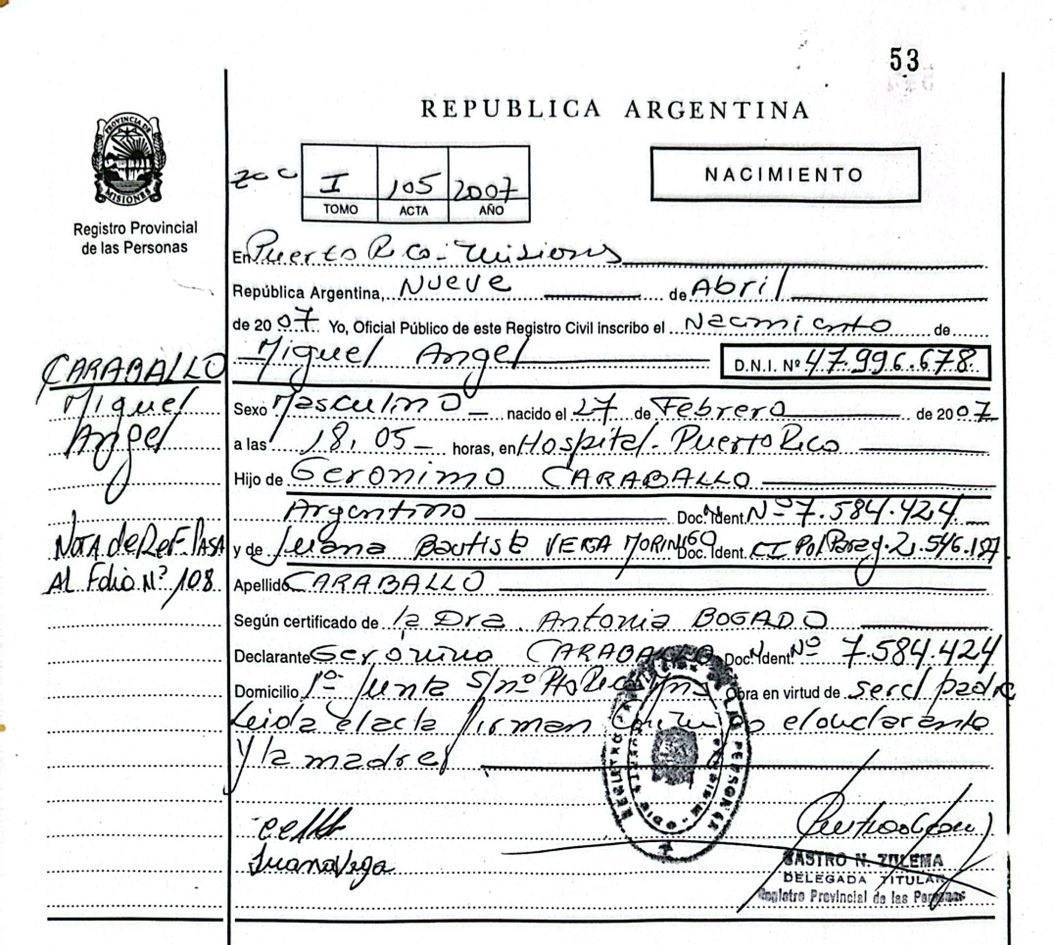 53
REPUBLICA ARGENTINA
PROVINCIA DE MISIONES
Registro Provincial
de las Personas
I 105 2007
TOMO ACTA AÑO
NACIMIENTO
En Puerto Rico - Misiones
República Argentina, Nueve de Abril
de 2007 Yo, Oficial Público de este Registro Civil inscribo el Nacimiento de
Miguel Angel D.N.I. Nº 47.996.678
CARABALLO
Miguel
Angel
Sexo Masculino nacido el 27 de Febrero de 2007
a las 18,05 horas, en Hospital - Puerto Rico
Hijo de Geronimo CARABALLO
Argentino Doc. Ident. Nº 7.584.424
NOTA de REF. PASA
AL Folio Nº 108
y de Juana Bautista VERA MORINIGO Doc. Ident. CI Pol Parag.
Apellido CARABALLO
Según certificado de la Dra. Antonia BOGADO
Declarante Geronimo CARABALLO Doc. Ident. Nº 7.584.424
Domicilio 1º Junta S/nº Pto Rico Mns Obra en virtud de ser el padre
Leida el acta firman el declarante
y la madre
Juana Vega
CASTRO N. ZULEMA
DELEGADA TITULAR
Registro Provincial de las Personas